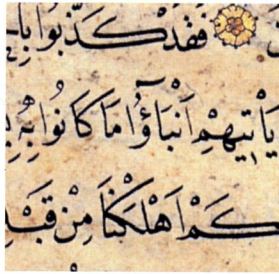 فَقَدْ كَذَّبُوا
يَأْتِيهِمْ أَنْبَاؤُا مَا كَانُوا بِهِ
كَمْ أَهْلَكْنَا مِنْ